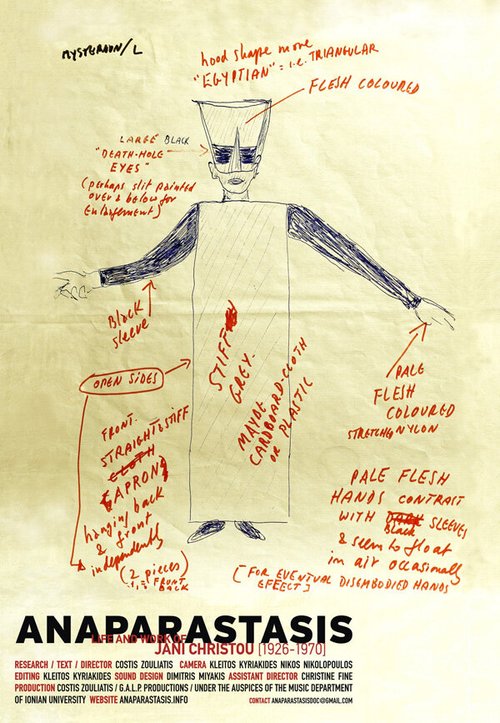 MYSTERION/L
hood shape more
"EGYPTIAN" = i.e. TRIANGULAR
FLESH COLOURED
LARGE BLACK
"DEATH-HOLE
EYES"
(perhaps slit painted
over & below for
Enlargement)
Black
sleeve
OPEN SIDES
STIFF
GREY.
MAYBE
CARDBOARD-CLOTH
OR PLASTIC
PALE
FLESH
COLOURED
STRETCHED NYLON
FRONT.
STRAIGHT & STIFF
CLOTH
(APRON)
hanging back
& front
independently
(2 pieces)
FRONT
BACK
PALE FLESH
HANDS CONTRAST
WITH Black SLEEVES
& seem to float
in air occasionally
[FOR EVENTUAL DISEMBODIED HANDS
EFFECT]
ANAPARASTASIS
LIFE AND WORK OF
JANI CHRISTOU [1926-1970]
RESEARCH / TEXT / DIRECTOR COSTIS ZOULIATIS CAMERA KLEITOS KYRIAKIDES NIKOS NIKOLOPOULOS
EDITING KLEITOS KYRIAKIDES SOUND DESIGN DIMITRIS MIYAKIS ASSISTANT DIRECTOR CHRISTINE FINE
PRODUCTION COSTIS ZOULIATIS / G.A.L.P. PRODUCTIONS / UNDER THE AUSPICES OF THE MUSIC DEPARTMENT
OF IONIAN UNIVERSITY WEBSITE ANAPARASTASIS.INFO CONTACT ANAPARASTASISDOC@GMAIL.COM